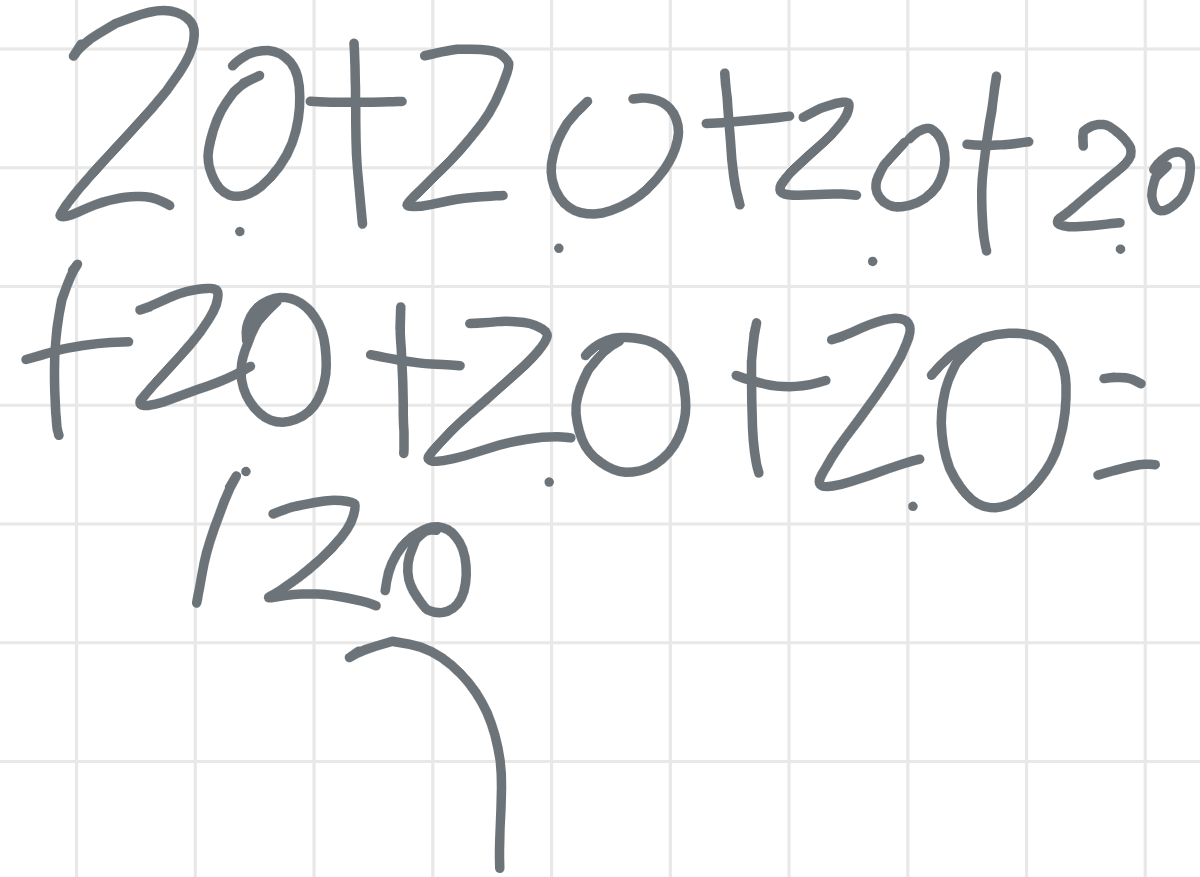 20+20+20+20
+20+20+20=
120